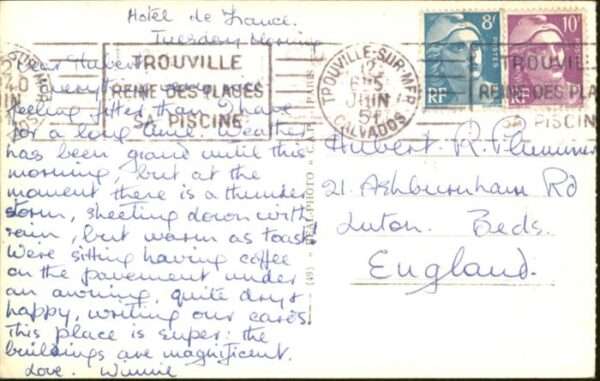 Hotel de France.
Tuesday Morning
Dear Hubert,
Everything
feeling fitter than I have
for a long time. Weather
has been grand until this
morning, but at the
moment there is a thunder
storm, sheeting down with
rain, but warm as toast!
We're sitting having coffee
on the pavement under
an awning, quite dry &
happy, writing our cards
This place is super: the
buildings are magnificent.
Love. Winnie
TROUVILLE
REINE DES PLAGES
SA PISCINE
TROUVILLE-SUR-MER
12
JUIN
CALVADOS
8F
RF
10F
RF
TROUVILLE
REINE DES PLA
SA PISCIN
Hubert. R. Plummer
21. Ashburnham Rd
Luton. Beds.
England.